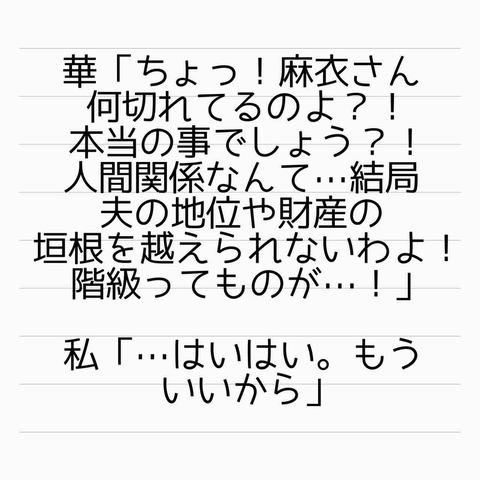 華「ちょっ！麻衣さん
何切れてるのよ？！
本当の事でしょう？！
人間関係なんて…結局
夫の地位や財産の
垣根を越えられないわよ！
階級ってものが…！」
私「…はいはい。もう
いいから」